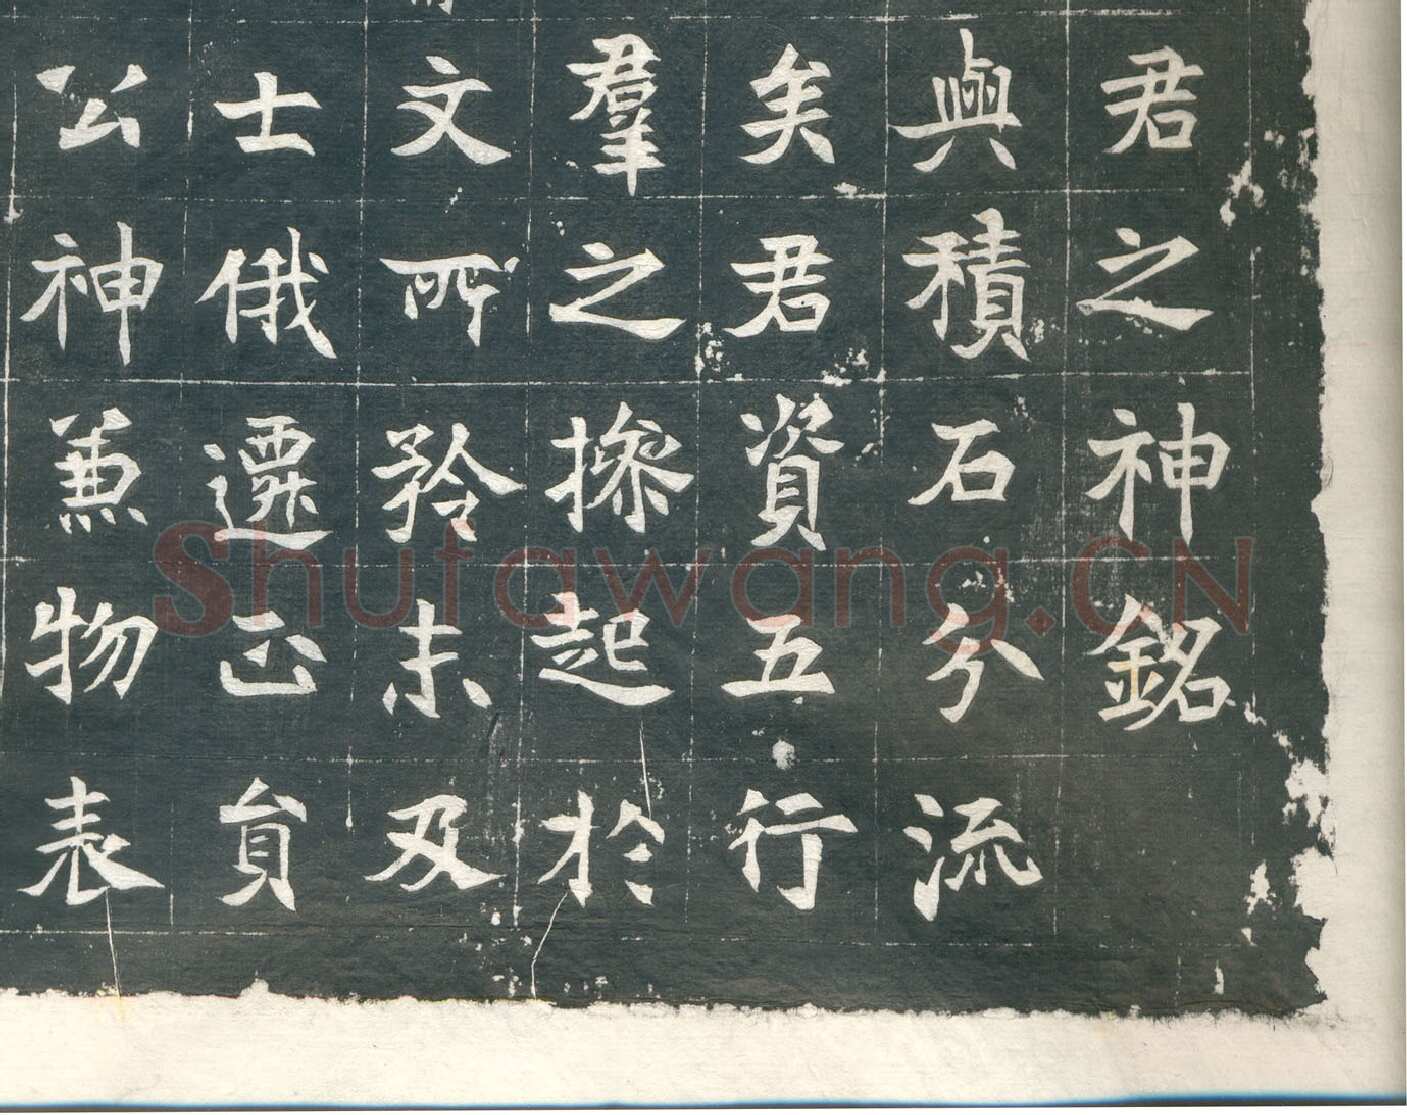 君之神銘
與積石分流
矣君資五行
羣之操起於
文所矜未及
士俄遷正員
公神兼物表
Shufawang.CN